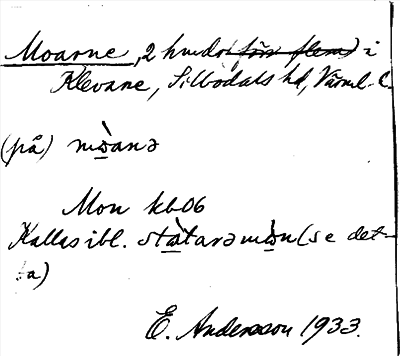 Moarne, 2 hmdr (förr flera) i
Klevane, Sillbodals hd, Värml. l.
(på) mɷ̀anə
Mon kb 06
Kallas ibl. státarəmɷ̀n (se det-
ta)
E. Andersson 1933.